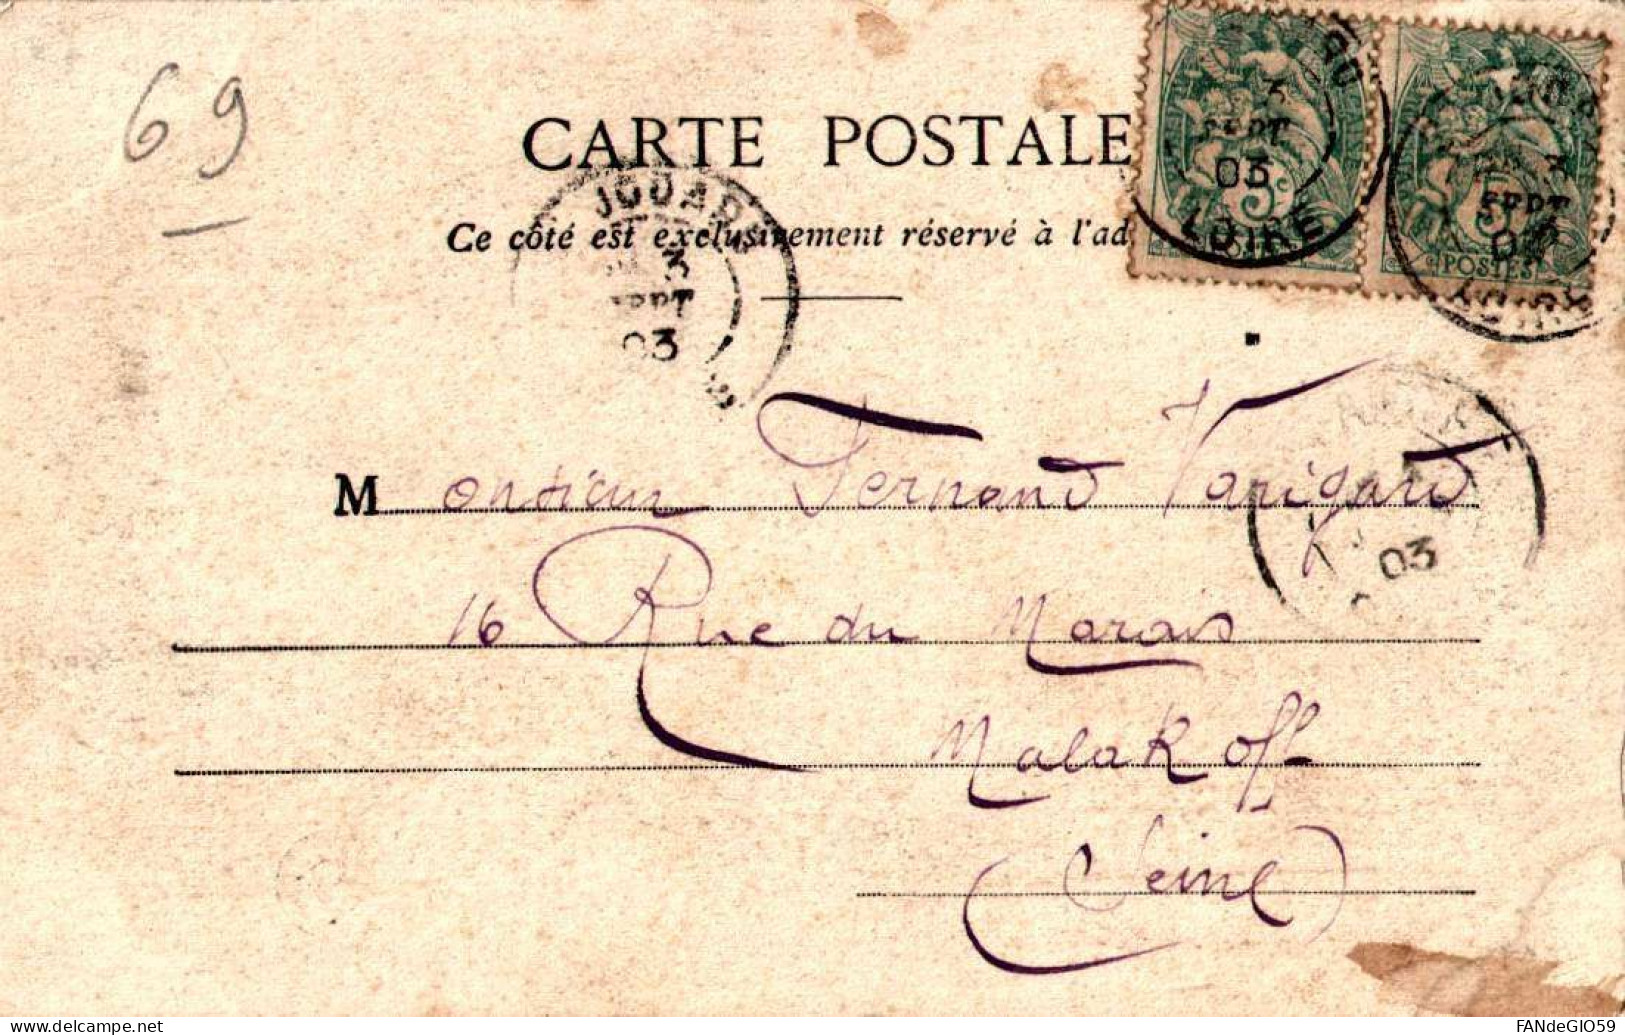 69
CARTE POSTALE
Ce côté est exclusivement réservé à l'ad
JOUARD
3
SEPT
03
3
SEPT
03
5c
LOIRE
3
SEPT
03
POSTES
Monsieur Fernand Varigard
03
16 Rue du Marais
Malakoff
(Seine)
www.delcampe.net
FANdeGIO59